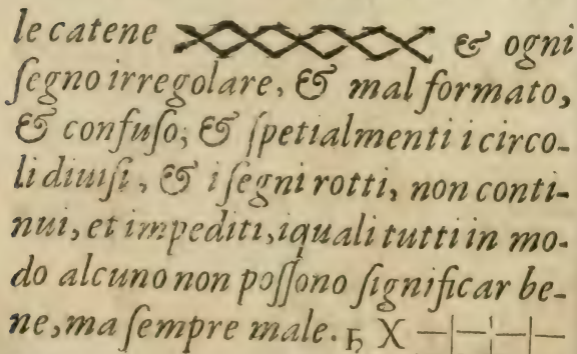 le catene & ogni
ſegno irregolare, & mal formato,
& confuſo, & ſpetialmenti i circo-
li diuiſi, & i ſegni rotti, non conti-
nui, et impediti, iquali tutti in mo-
do alcuno non poſſono ſignificar be-
ne, ma ſempre male. ♄ X